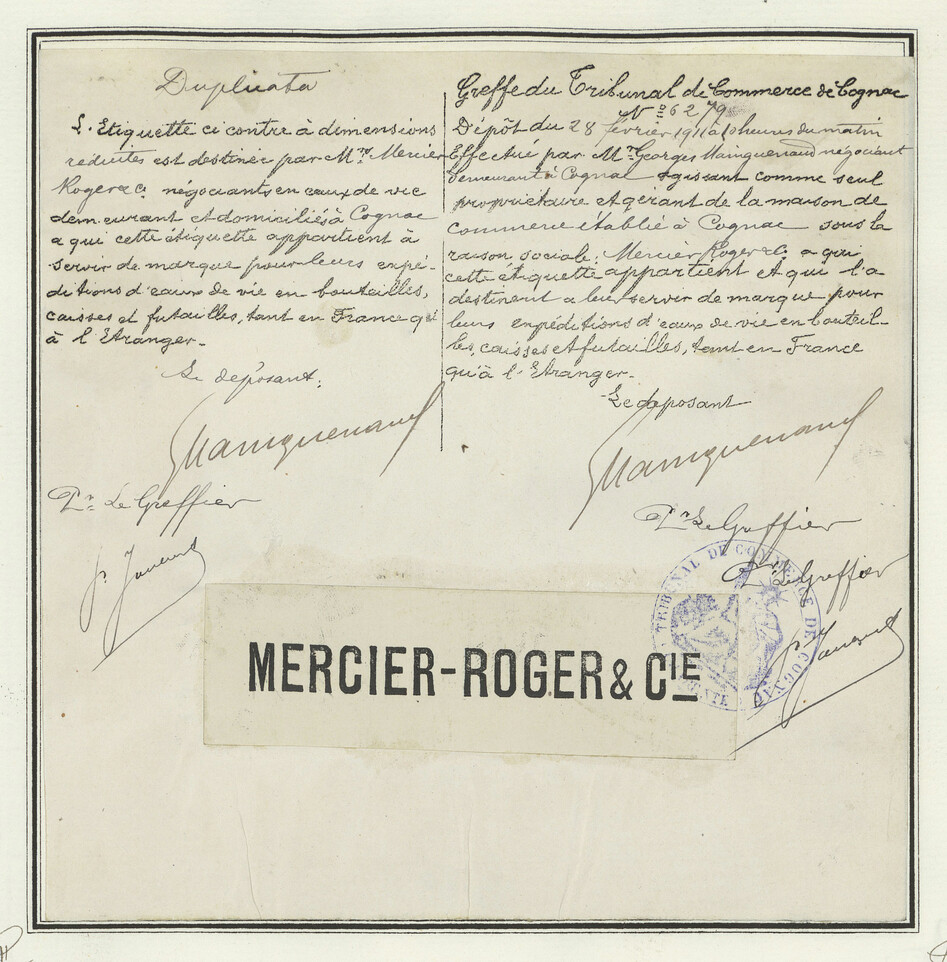 Duplicata
L'Etiquette ci contre à dimensions
reduites est destinée par Mrs Mercier
Roger & Cie négociants en eaux de vie
demeurant et domiciliés à Cognac
a qui cette étiquette appartient à
servir de marque pour leurs expé-
ditions d'eaux de vie en bouteilles,
caisses et futailles, tant en France qu'
à l'Etranger.
Le déposant:
GMainguenaud
Pr. Le Greffier
Greffe du Tribunal de Commerce de Cognac
No 6279
Dépôt du 28 février 1911 à 10 heures du matin
Effectué par Mr Georges Mainguenaud négociant
demeurant à Cognac agissant comme seul
propriétaire et gérant de la maison de
commerce établie à Cognac sous la
raison sociale: Mercier Roger & Cie a qui
cette étiquette appartient et qui l'a
destinent a leur servir de marque pour
leurs expéditions d'eaux de vie en bouteil-
les, caisses et futailles, tant en France
qu'à l'Etranger.
Le deposant
GMainguenaud
Pr. Le Greffier
Pr. Le Greffier
TRIBUNAL DE COMMERCE DE COGNAC
MERCIER-ROGER & CIE